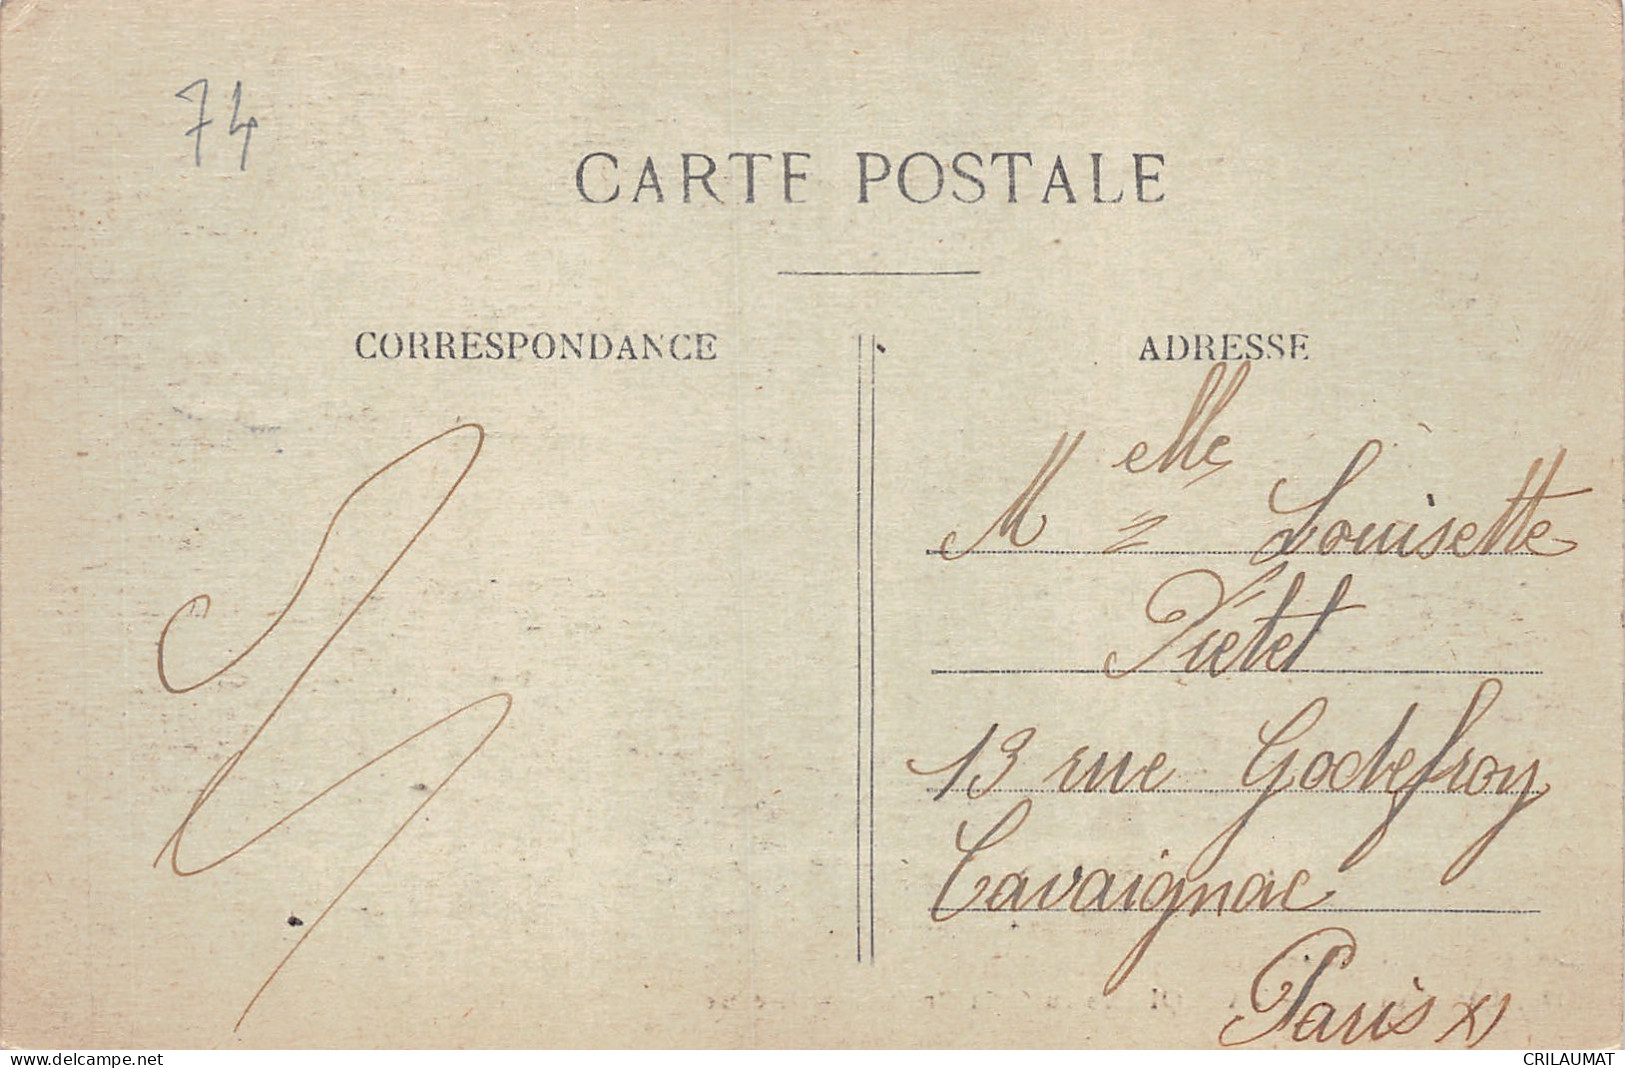 74
CARTE POSTALE
CORRESPONDANCE
ADRESSE
Melle Louisette
Pietet
13 rue Godefroy
Cavaignac
Paris XI
www.delcampe.net
CRILAUMAT